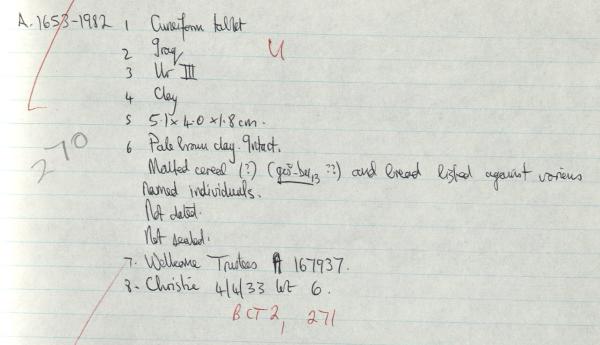 A. 1653-1982 1 Cuneiform tablet
2 Iraq
U
3 Ur III
4 Clay
5 5.1 x 4.0 x 1.8 cm.
6 Pale brown clay. Intact.
270
Malted cereal (?) (ges-bu13 ??) and bread listed against various
named individuals.
Not dated.
Not sealed.
7. Wellcome Trustees A 167937.
8. Christie 4/4/33 lot 6.
BCT2, 271